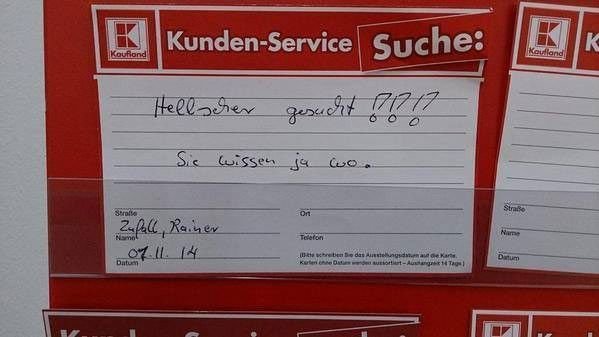 Kaufland
Kunden-Service Suche:
Hellseher gesucht !!!
Sie wissen ja wo.
Straße
Ort
Zufall, Rainer
Name
Telefon
07.11.14
Datum
(Bitte schreiben Sie das Ausstellungsdatum auf die Karte.
Karten ohne Datum werden aussortiert – Aushangzeit 14 Tage.)
Kaufland
K
Straße
Name
Datum
Kunden-Service